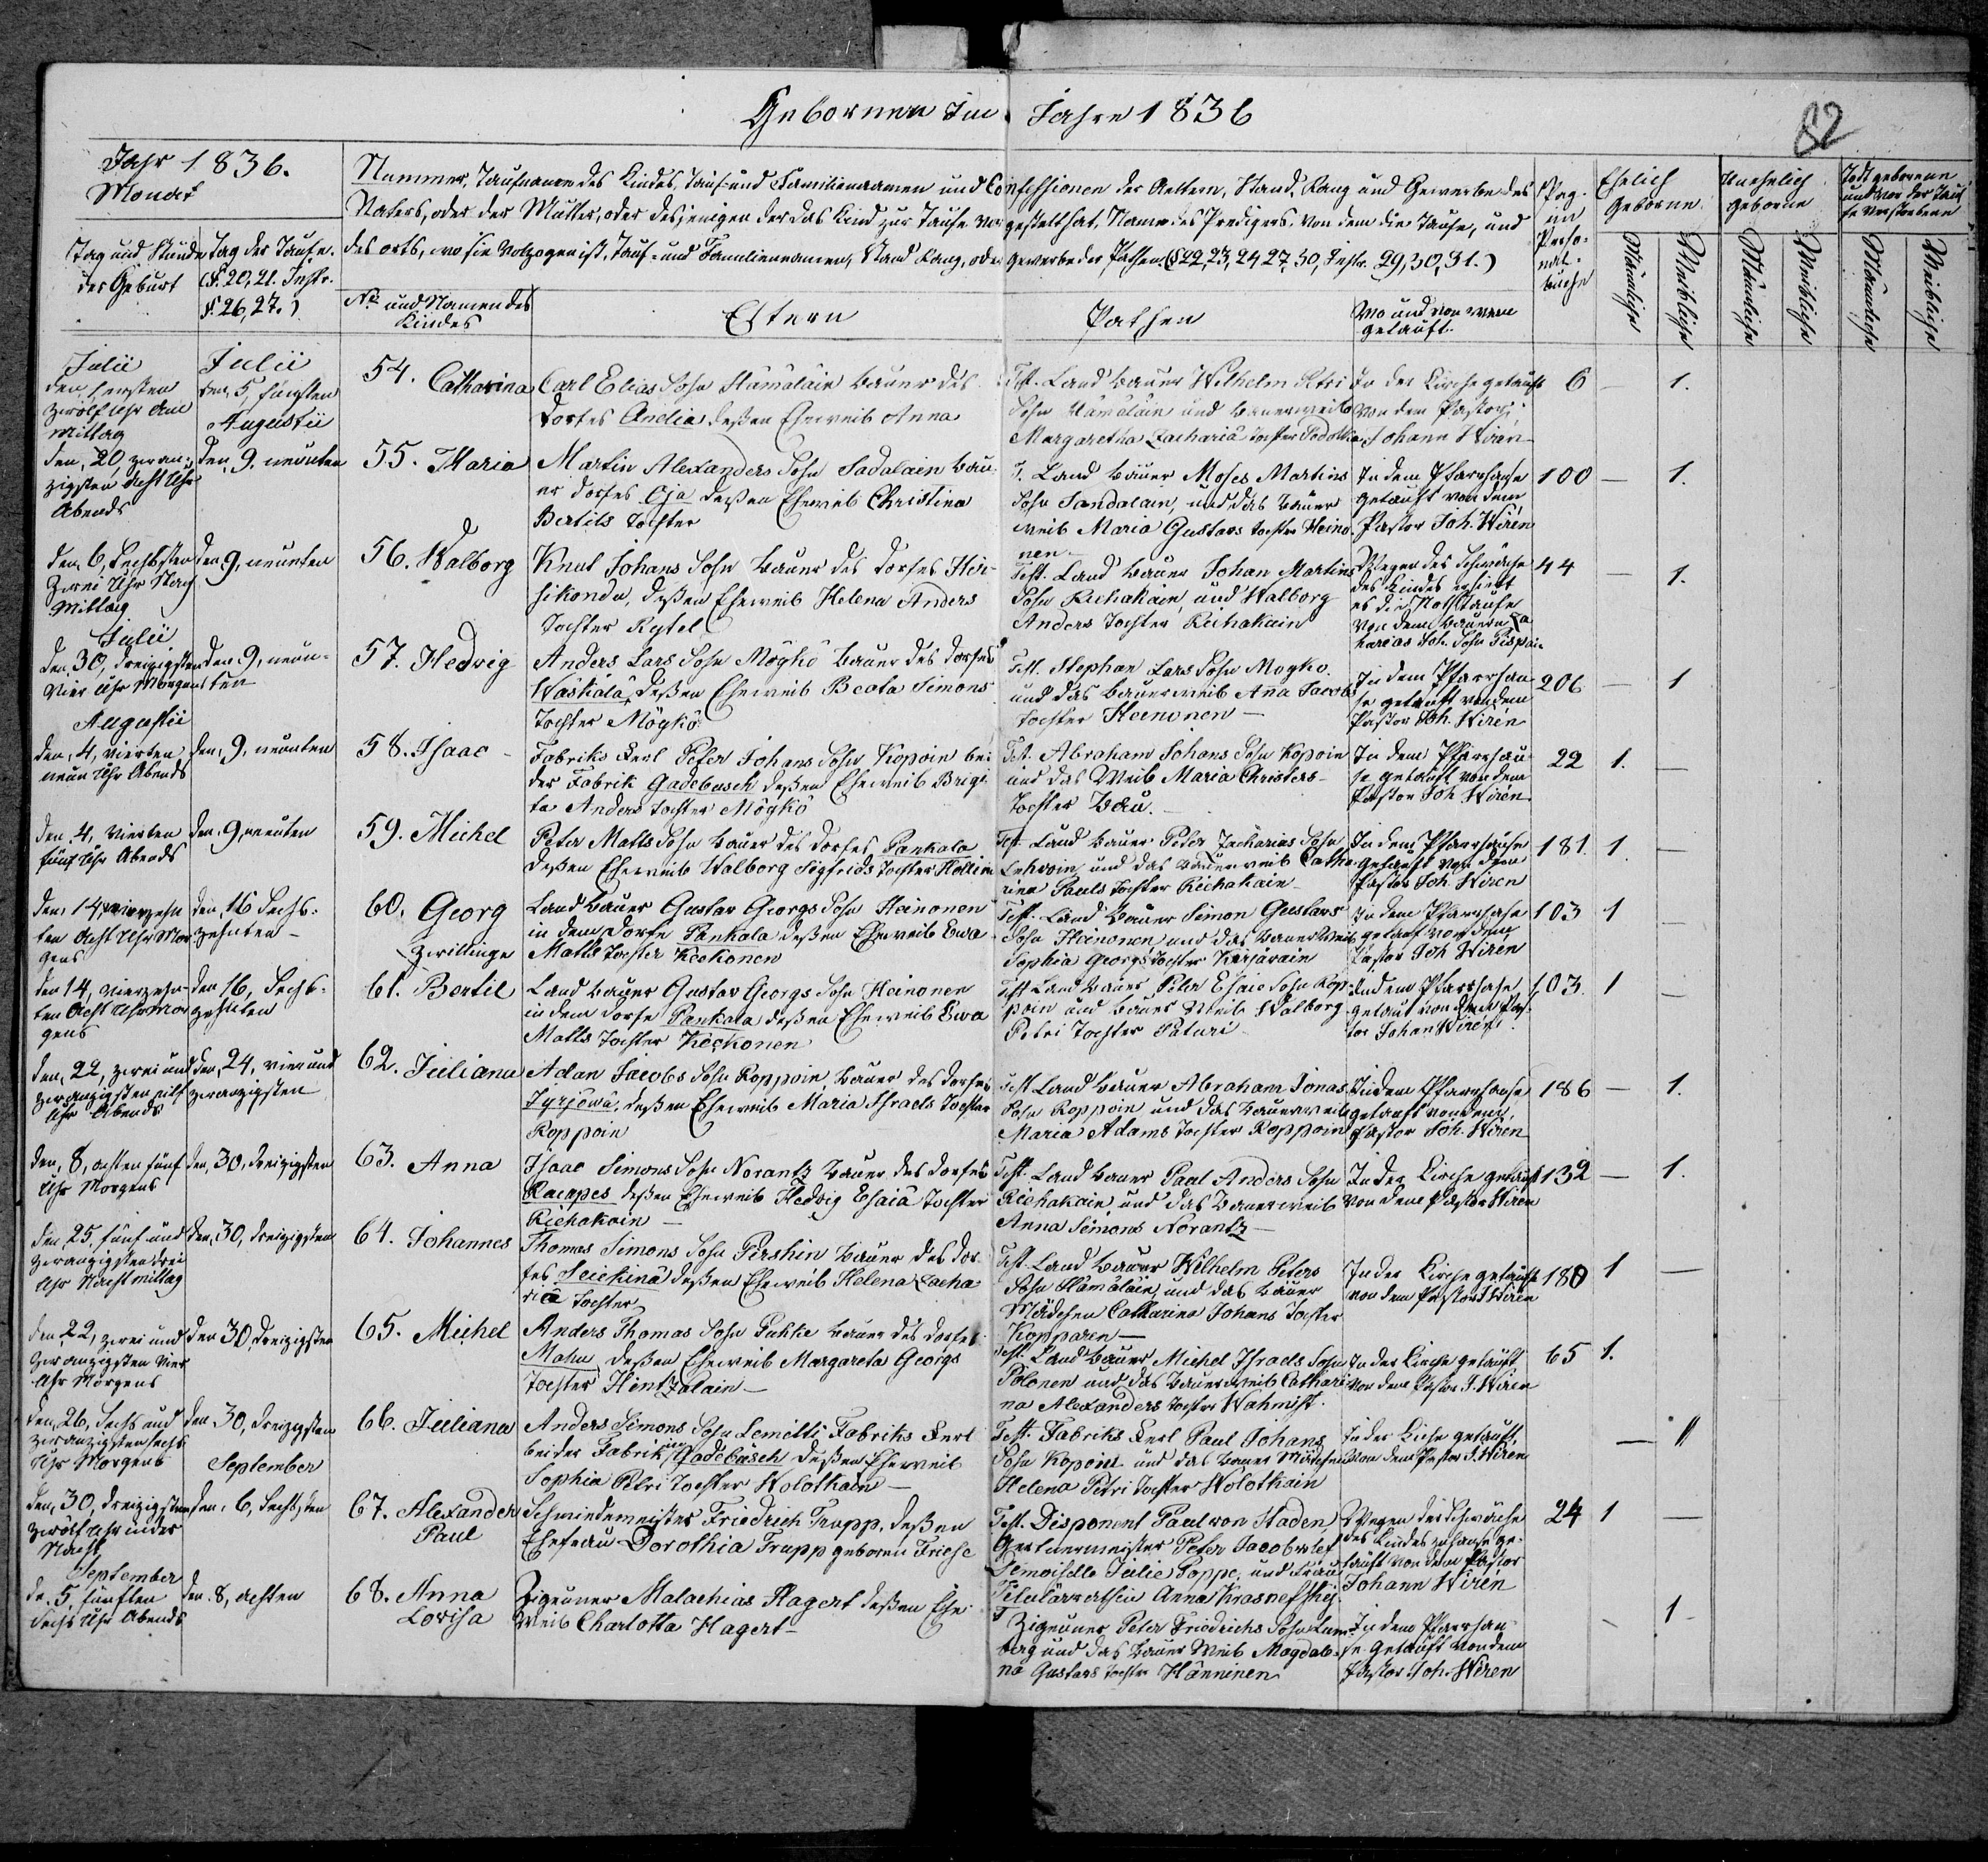 Gebornen Im Jahre 1836
82
Jahr 1836.
Monat
Tag und Stunde
der Geburt
Tag der Taufe.
(§. 20, 21. Instr.
§. 26, 27.)
Nummer, Taufname des Kindes, Tauf- und Familiennamen und Confessionen der Aeltern, Stand, Rang und Gewerbe des
Vaters, oder der Mutter, oder desjenigen der das Kind zur Taufe vorgestellt hat, Name des Predigers, von dem die Taufe, und
des Orts, wo sie volzogen ist, Tauf- und Familiennamen, Stand Rang, oder Gewerbe der Pathen. (§ 22, 23, 24 27, 30, Instr. 29, 30, 31.)
No und Namen des
Kindes
Eltern
Pathen
Wo und von wem
getauft.
Pag.
im
Perso-
nal-
buche
Ehelich
Geborne
Unehelich
geborne
Todt geborene
und vor der Tau
fe verstorbene
Männliche
Weibliche
Männliche
Weibliche
Männliche
Weibliche
Julii
den, ersten
zwölf Uhr am
Mittag
Julii
den, 5, fünften
Augustii
54. Catharina
Carl Elias Sohn Hämäläin Bauer des
Dorfes Andia deßen Eheweib Anna
Test. Land Bauer Wilhelm Petri
Sohn Hämäläin und Bauerweib
Margaretha Zachariä Tochter Podolka
In der Kirche getauft
von dem Pastor
Johann Wirén
6 — 1.
den, 20, zwan-
zigsten acht Uhr
Abends
den, 9. neunten
55. Maria
Martin Alexanders Sohn Sadalain Bau
er Dorfes Oja deßen Eheweib Christina
Bertils Tochter
T. Land Bauer Moses Martins
Sohn Sandalain, und das Bauer
weib Maria Gustavs Tochter Heino
nen —
In dem Pfarrhause
getauft von dem
Pastor Joh. Wirén
100 — 1.
den, 6, Sechsten
Zwei Uhr Nach
Mittag
den, 9, neunten
56. Walborg
Knut Johans Sohn Bauer des Dorfes Hör
sikondu, deßen Eheweib Helena Anders
Tochter Rytel
Test. Land Bauer Johan Martins
Sohn Richakain, und Walborg
Anders Tochter Richakain
Wegen der Schwäche
des Kindes erhielt
es die Nothtaufe
von dem Bauern Za
harias Joh. Sohn
44 — 1.
Julii
den, 30, dreizigsten
Vier Uhr Morgens
den 9, neun-
ten
57. Hedwig
Anders Lars Sohn Mögkö Bauer des Dorfes
Waskälä, deßen Eheweib Beata Simons
Tochter Mögkö
Test. Stephan Lars Sohn Mögko
und das Bauerweib Ana Jacobs
Tochter Heinonen —
In dem Pfarrhau
se getauft von dem
Pastor Joh. Wirén
206 — 1
Augustii
den, 4, vierten
neun Uhr Abends
den, 9, neunten
58. Isaac
Fabriks Kerl Peter Johans Sohn Kopoin bei
der Fabrik Gadebusch deßen Eheweib Brigi
ta Anders Tochter Mögkö
Test. Abraham Johans Sohn Kopoin
und das Weib Maria Christers
Tochter Wau. —
In dem Pfarrhau
se getauft von dem
Pastor Joh. Wirén
22 1. —
den, 4, vierten
fünf Uhr Abends
den, 9, neunten
59. Michel
Peter Matts Sohn Bauer des Dorfes Pankala
deßen Eheweib Walborg Sigfrids Tochter
Test. Land Bauer Peter Zacharias Sohn
und das Bauerweib Catha
rina Pauls Tochter Richakain
In dem Pfarrhause
getauft von dem
Pastor Joh. Wirén
181. 1. —
den, 14, vierzehn
ten acht Uhr Mor
gens
den, 16 Sechs-
zehnten —
60. Georg
Zwillinge
Land Bauer Gustav Georgs Sohn Heinonen
in dem Dorfe Pankala deßen Eheweib Ewa
Matts Tochter Kockonen
Test. Land Bauer Simon Gustavs
Sohn Heinonen, und das Bauer Weib
Sophia Georgs Tochter Karjavain
In dem Pfarrhause
getauft von dem
Pastor Joh Wirén
103 1 —
den 14, vierzehn
ten acht Uhr Mor
gens
den 16, Sechs-
zehnten
61. Bertil
Land Bauer Gustav Georgs Sohn Heinonen
in dem Dorfe Pankala deßen Eheweib Ewa
Matts Tochter Kockonen
Test Land Bauer Peter Esaias Sohn Kop-
poin und Bauer Weib Walborg
Petri Tochter Paturi
In dem Pfarrhause
getauft von dem Pas
tor Johan Wirén
103. 1 —
den, 22, zwei und
zwanzigsten elf
Uhr Abends
den, 24, vier und
zwanzigsten
62. Juliana
Adam Jacobs Sohn Koppoin, Bauer des Dorfes
Syrjöwä, deßen Eheweib Maria Israels Tochter
Koppoin
Test Land Bauer Abraham Jonas
Sohn Koppoin und das Bauerweib
Maria Adams Tochter Koppoin
In dem Pfarrhause
getauft von dem
Pastor Joh. Wirén
186 — 1.
den, 8, achten fünf
Uhr Morgens
den, 30, dreizigsten
63. Anna
Isaac Simons Sohn Norantz Bauer des Dorfes
Kaempes deßen Eheweib Hedvig Esaiä Tochter
Richakain —
Test. Land Bauer Paul Anders Sohn
Richakain, und das Bauerweib
Anna Simons Norantz —
In der Kirche getauft
von dem Pastor Wirén
132 — 1.
den, 25, fünf und
zwanzigsten drei
Uhr Nachmittag
den, 30, dreizigsten
64. Johannes
Thomas Simons Sohn Pershin Bauer des Dor
fes Seiekinä deßen Eheweib Helena Zacha
riä Tochter
Test. Land Bauer Wilhelm Peters
Sohn Hämäläin, und das Bauer
Mädchen Catharina Johans Tochter
Kopparen —
In der Kirche getauft
von dem Pastor Wirén
180 1 —
den, 22, zwei und
zwanzigsten Vier
Uhr Morgens
den 30, dreizigsten
65. Michel
Anders Thomas Sohn Pukke Bauer des Dorfes
Mahu deßen Eheweib Margareta Georgs
Tochter Hintzalain —
Test. Land Bauer Michel Israels Sohn
Polonen und das Bauerweib Cathari
na Alexanders Tochter Wahmist.
In der Kirche getauft
von dem Pastor J. Wirén
65 1.
den, 26, Sechs und
zwanzigsten sechs
Uhr Morgens
den 30, dreizigsten
66. Juliana
Anders Simons Sohn Lemitti Fabriks Kerl
bei der Fabrik Gadebusch deßen Eheweib
Sophia Petri Tochter Wolotkain —
Test. Fabriks Kerl Paul Johans
Sohn Kopoin und das Bauer Mädchen
Helena Petri Tochter Wolotkain
In der Kirche getauft,
von dem Pastor J. Wirén
— 1
September
den, 30, dreizigsten
zwölf Uhr in der
Nacht
den, 6, Sechsten
67. Alexander
Paul
Schmiedemeister Friedrich Trapp, deßen
Ehefrau Dorothia Trapp geboren Friese
Test. Disponent Paul von Staden,
Gertnermeister Peter Jacobwlef
Demoiselle Julie Poppe, und Frau
Titulärräthin Anna Krasnefskij
Wegen der Schwäche
des Kindes zuhause ge-
tauft von dem Pastor
Johann Wirén
24 1 —
September
de. 5, fünften
Sechs Uhr Abends
den. 8, achten
68. Anna
Lovisa
Zigeuner Malachias Hagert deßen Ehe
Weib Charlotta Hagert —
T Zigeuner Peter Friedrichs Sohn Lum
berg und das Bauer Weib Magdale-
na Gustavs Tochter Hänninen
In dem Pfarrhau
se getauft von dem
Pastor Joh. Wirén
— 1 —